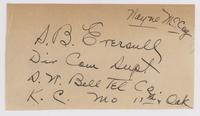 Wayne McCoy
S. B. Etersull
Div Com Supt
S. W. Bell Tel Co
K. C. Mo 11 Oak